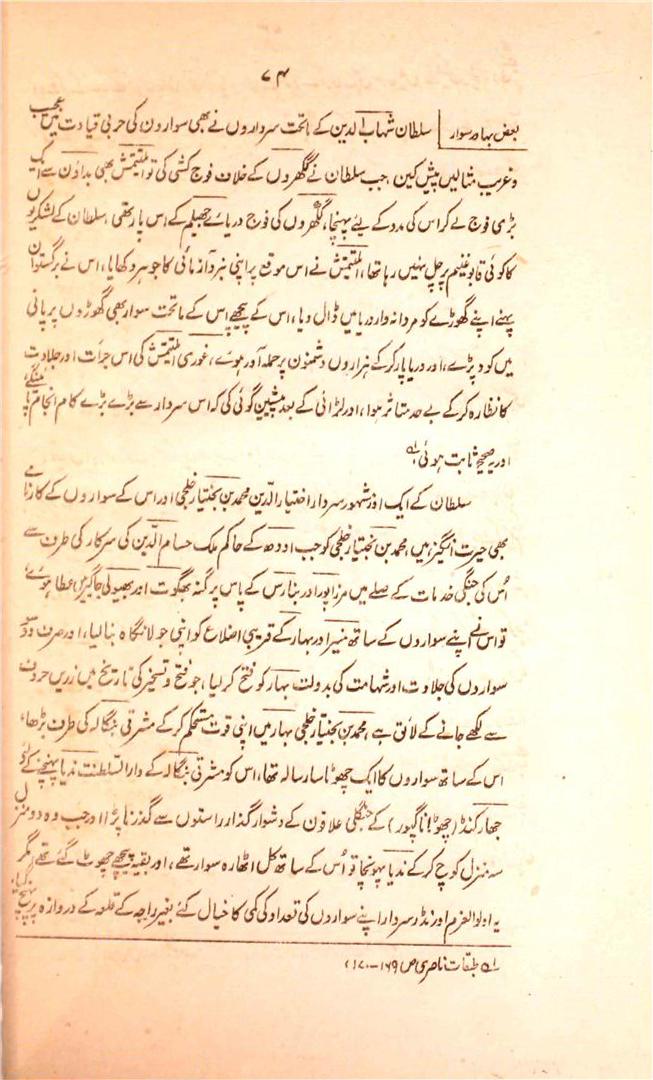 ۷۴
بعض بہادر سوار سلطان شہاب الدین کے ماتحت سرداروں نے بھی سوارون کی حربی قیادت میں عجیب
و غریب مثالیں پیش کیں، جب سلطان نے گکھروں کے خلاف فوج کشی کی تو التمش بھی بداؤن سے ایک
بڑی فوج لے کر اس کی مدد کے لئے پہنچا، گکھروں کی فوج دریائے جھیلم کے اس پار تھی، سلطان کے لشکریوں
کا کوئی قابو غنیم پر چل نہیں رہا تھا، التمش نے اس موقع پر اپنی نبرد آزمائی کا جوہر دکھایا، اس نے برگستوان
پہنے اپنے گھوڑے کو مردانہ وار دریا میں ڈال دیا، اس کے پیچھے اس کے ماتحت سوار بھی گھوڑوں پر پانی
میں کود پڑے، اور دریا پار کر کے ہزاروں دشمنون پر حملہ آور ہوئے، غوری التمش کی اس جرأت اور جلادت
کا نظارہ کر کے بے حد متاثر ہوا، اور لڑائی کے بعد پیشین گوئی کی کہ اس سردار سے بڑے بڑے کام انجام پائینگے،
اور یہ صحیح ثابت ہوئی لہ
سلطان کے ایک اور مشہور سردار اختیار الدین محمد بن بختیار خلجی اور اس کے سواروں کے کارنامے
بھی حیرت انگیز ہیں، محمد بن بختیار خلجی کو جب اودھ کے حاکم ملک حسام الدین کی سرکار کی طرف سے
اُس کی جنگی خدمات کے صلے میں مرزاپور اور بنارس کے پاس پرگنہ بھگوت اور بھیولی جاگیریں عطا ہوئے
تو اس نے اپنے سواروں کے ساتھ منیر اور بہار کے قریبی اضلاع کو اپنی جولانگاہ بنالیا، اور صرف دو سو
سواروں کی جلاوت، اور شہامت کی بدولت بہار کو فتح کر لیا، جو فتح و تسخیر کی تاریخ میں زریں حروف
سے لکھے جانے کے لائق ہے، محمد بن بختیار خلجی بہار میں اپنی قوت مستحکم کر کے مشرقی بنگالہ کی طرف بڑھا،
اس کے ساتھ سواروں کا ایک چھوٹا سا رسالہ تھا، اس کو مشرقی بنگالہ کے دار السلطنت ندیا پہنچنے کے لئے
جھارکنڈ (چھوٹا ناگپور) کے جنگلی علاقون کے دشوار گذار راستوں سے گذرنا پڑا اور جب وہ دو منزل
سہ منزل کوچ کر کے ندیا پہونچا تو اُس کے ساتھ کل اٹھارہ سوار تھے، اور بقیہ پیچھے چھوٹ گئے تھے، مگر
یہ اولوالعزم اور نڈر سردار اپنے سواروں کی تعداد کی کمی کا خیال کئے بغیر راجہ کے قلعہ کے دروازہ پر پہنچ گیا،
لہ طبقات ناصری ص ۱۶۹-۱۷۰